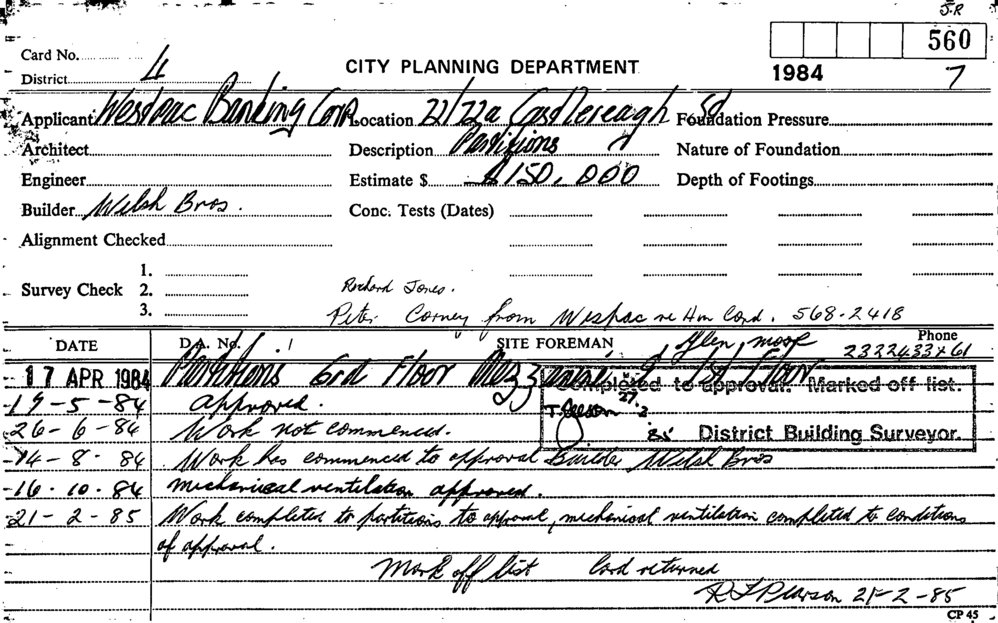 J.R
560
Card No.
District 4
CITY PLANNING DEPARTMENT
1984 7
Applicant Westpac Banking Corp Location 22/22a Castlereagh St Foundation Pressure
Architect Description Partitions Nature of Foundation
Engineer Estimate $ $150,000 Depth of Footings
Builder Welsh Bros. Conc. Tests (Dates)
Alignment Checked
1.
Survey Check 2. Richard Jones.
3. Peter Corney from Wespac re Hm Cond. 568-2418
DATE D.A. No. SITE FOREMAN Glen Phone
17 APR 1984 Partitions Grd Floor Mezzanine & 1st Floor
Completed to approval. Marked off list.
27.2.85 District Building Surveyor.
-5-84 approved.
26-6-84 Work not commenced.
14-8-84 Work has commenced to approval Builder Welsh Bros
16.10.84 mechanical ventilation approved.
21-2-85 Work completed to partitions to approval, mechanical ventilation completed to conditions
of approval.
Mark off list Card returned
21-2-85
CP 45